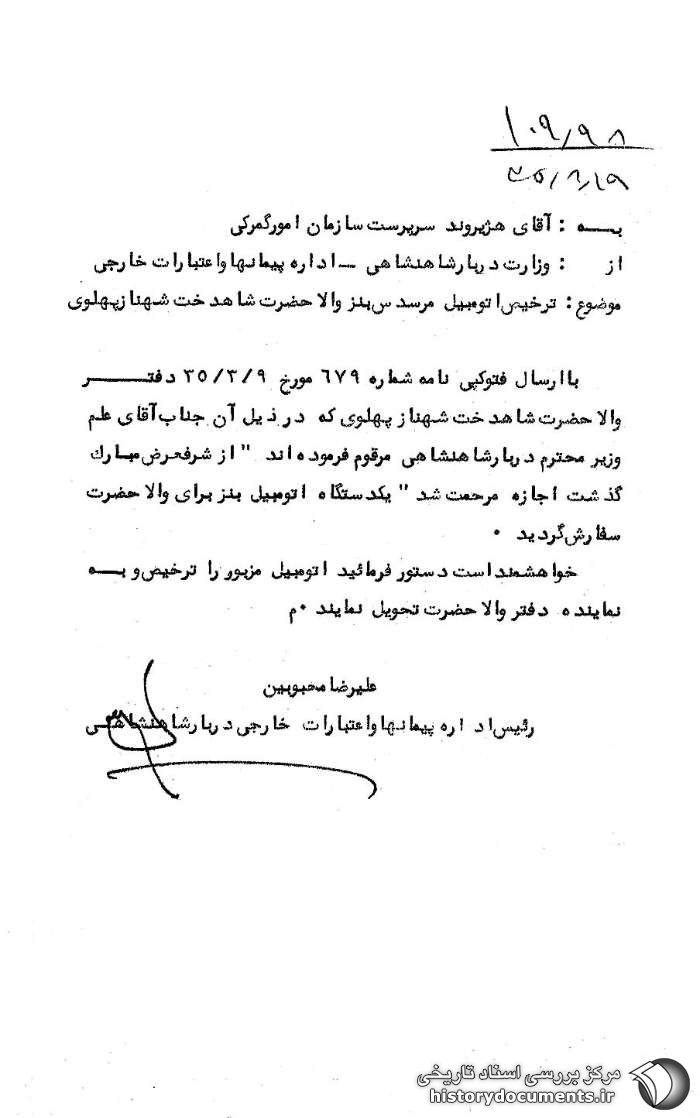 ۱۰۹/۹۸
۳۵/۶/۱۹
بـــه : آقای هژیروند سرپرست سازمان امورگمرکی
از : وزارت دربارشاهنشاهی ــ اداره پیمانها و اعتبارات خارجی
موضوع : ترخیص اتومبیل مرسدس بنز والاحضرت شاهدخت شهناز پهلوی
با ارسال فتوکپی نامه شماره ۶۷۹ مورخ ۳۵/۳/۹ دفتـــر
والاحضرت شاهدخت شهناز پهلوی که در ذیل آن جناب آقای علم
وزیر محترم دربارشاهنشاهی مرقوم فرموده اند " از شرفعرض مبارك
گذشت اجازه مرحمت شد " یکدستگاه اتومبیل بنز برای والاحضرت
سفارش گردید ۰
خواهشمند است دستور فرمائید اتومبیل مزبور را ترخیص و بـــه
نماینده دفتر والاحضرت تحویل نمایند ۰م
علیرضا محبوبین
رئیس اداره پیمانها و اعتبارات خارجی دربارشاهنشاهــی
مرکز بررسی اسناد تاریخی
historydocuments.ir